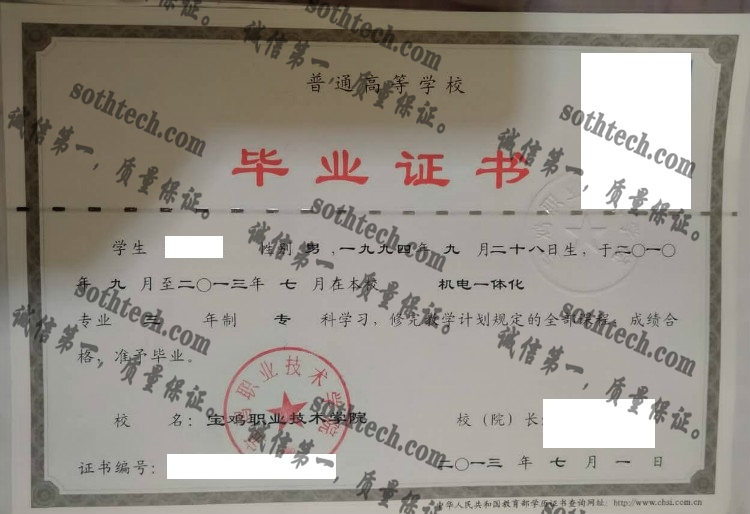 普通高等学校
毕业证书
学生 性别 男，一九九四年 九 月二十八日生，于二〇一〇
年 九 月至二〇一三年 七 月在本校 机电一体化
专业 三 年制 专 科学习，修完教学计划规定的全部课程，成绩合
格，准予毕业。
校 名：宝鸡职业技术学院 校（院）长：
证书编号： 二〇一三 年 七 月 一 日
中华人民共和国教育部学历证书查询网址：http://www.chsi.com.cn
宝鸡职业技术学院
sothtech.com
诚信第一，质量保证。
sothtech.com
诚信第一，质量保证。
sothtech.com
诚信第一，质量保证。
sothtech.com
诚信第一，质量保证。
sothtech.com
诚信第一，质量保证。
sothtech.com
诚信第一，质量保证。
sothtech.com
诚信第一，质量保证。